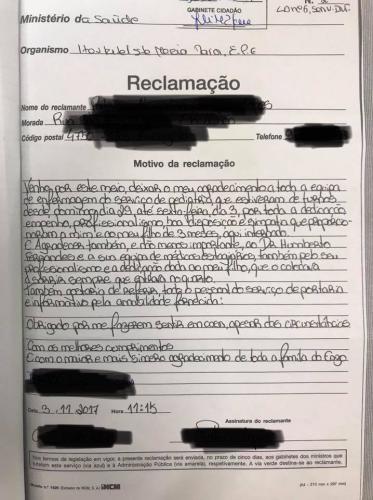 Ministério da Saúde
GABINETE CIDADÃO
Organismo Hospital Sta Maria Maior, E.P.E
Reclamação
Nome do reclamante
Morada Rua
Código postal 47
Telefone
Motivo da reclamação
Venho por este meio, deixar o meu agradecimento a toda a equipa
de enfermagem do serviço de pediatria que estiveram de turnos
desde domingo, dia 29, até sexta-feira, dia 3, por toda a dedicação
empenho, profissionalismo, boa disposição e simpatia que proporcio-
naram a mim e ao meu filho de 3 meses, aqui internado.
E Agradecer também, e não menos importante, ao Dr. Humberto
Fernandes e a sua equipa de médicos estagiários, também pelo seu
profissionalismo e a dedicação dada ao meu filho, que o colocava
a sorrir sempre que entrava no quarto.
Também gostaria de referir, todo o pessoal do serviço de portaria
e informativo pela amabilidade fornecida.
Obrigado por me fazerem sentir em casa, apesar das circunstâncias
Com os melhores cumprimentos
E com o maior e mais sincero agradecimento de toda a família do
Data 3.11.2017 Hora 11:15
Assinatura do reclamante
Nos termos da legislação em vigor, a presente reclamação será enviada, no prazo de cinco dias, aos gabinetes dos ministros que
tutelam este serviço (via azul) e à Administração Pública (via amarela), respetivamente. A via verde destina-se ao reclamante.
Modelo n.º 1426 (Exclusivo da INCM, S. A.) INCM
(A4 - 210 mm x 297 mm)